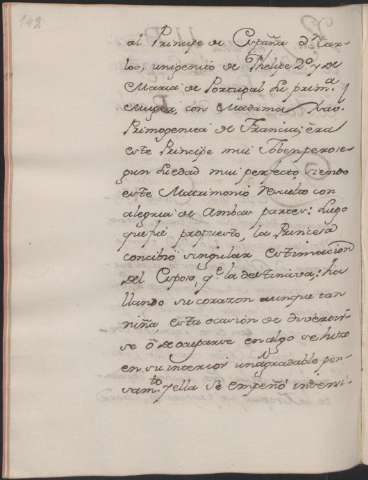 148
al Principe de España Dn Car-
los, unigenito de Phelipe 2o y de
Maria de Portugal su prim.a
Muger, con Madama Ysav.l
Primogenita de Francia; era
este Principe mui Joben pero se-
gun su edad mui perfecto, siendo
este Matrimonio resuelto con
alegria de Ambas partes: Luego
que fue propuesto, la Princesa
concibió singular estimacion
del Esposo, qe la destinava: ha-
llando su corazon aunque tan
niña esta ocasion de divertir-
se ó de ocuparse en algo se hizo
en su interior un agradable pen-
sam.to y ella se empeñó insensi-